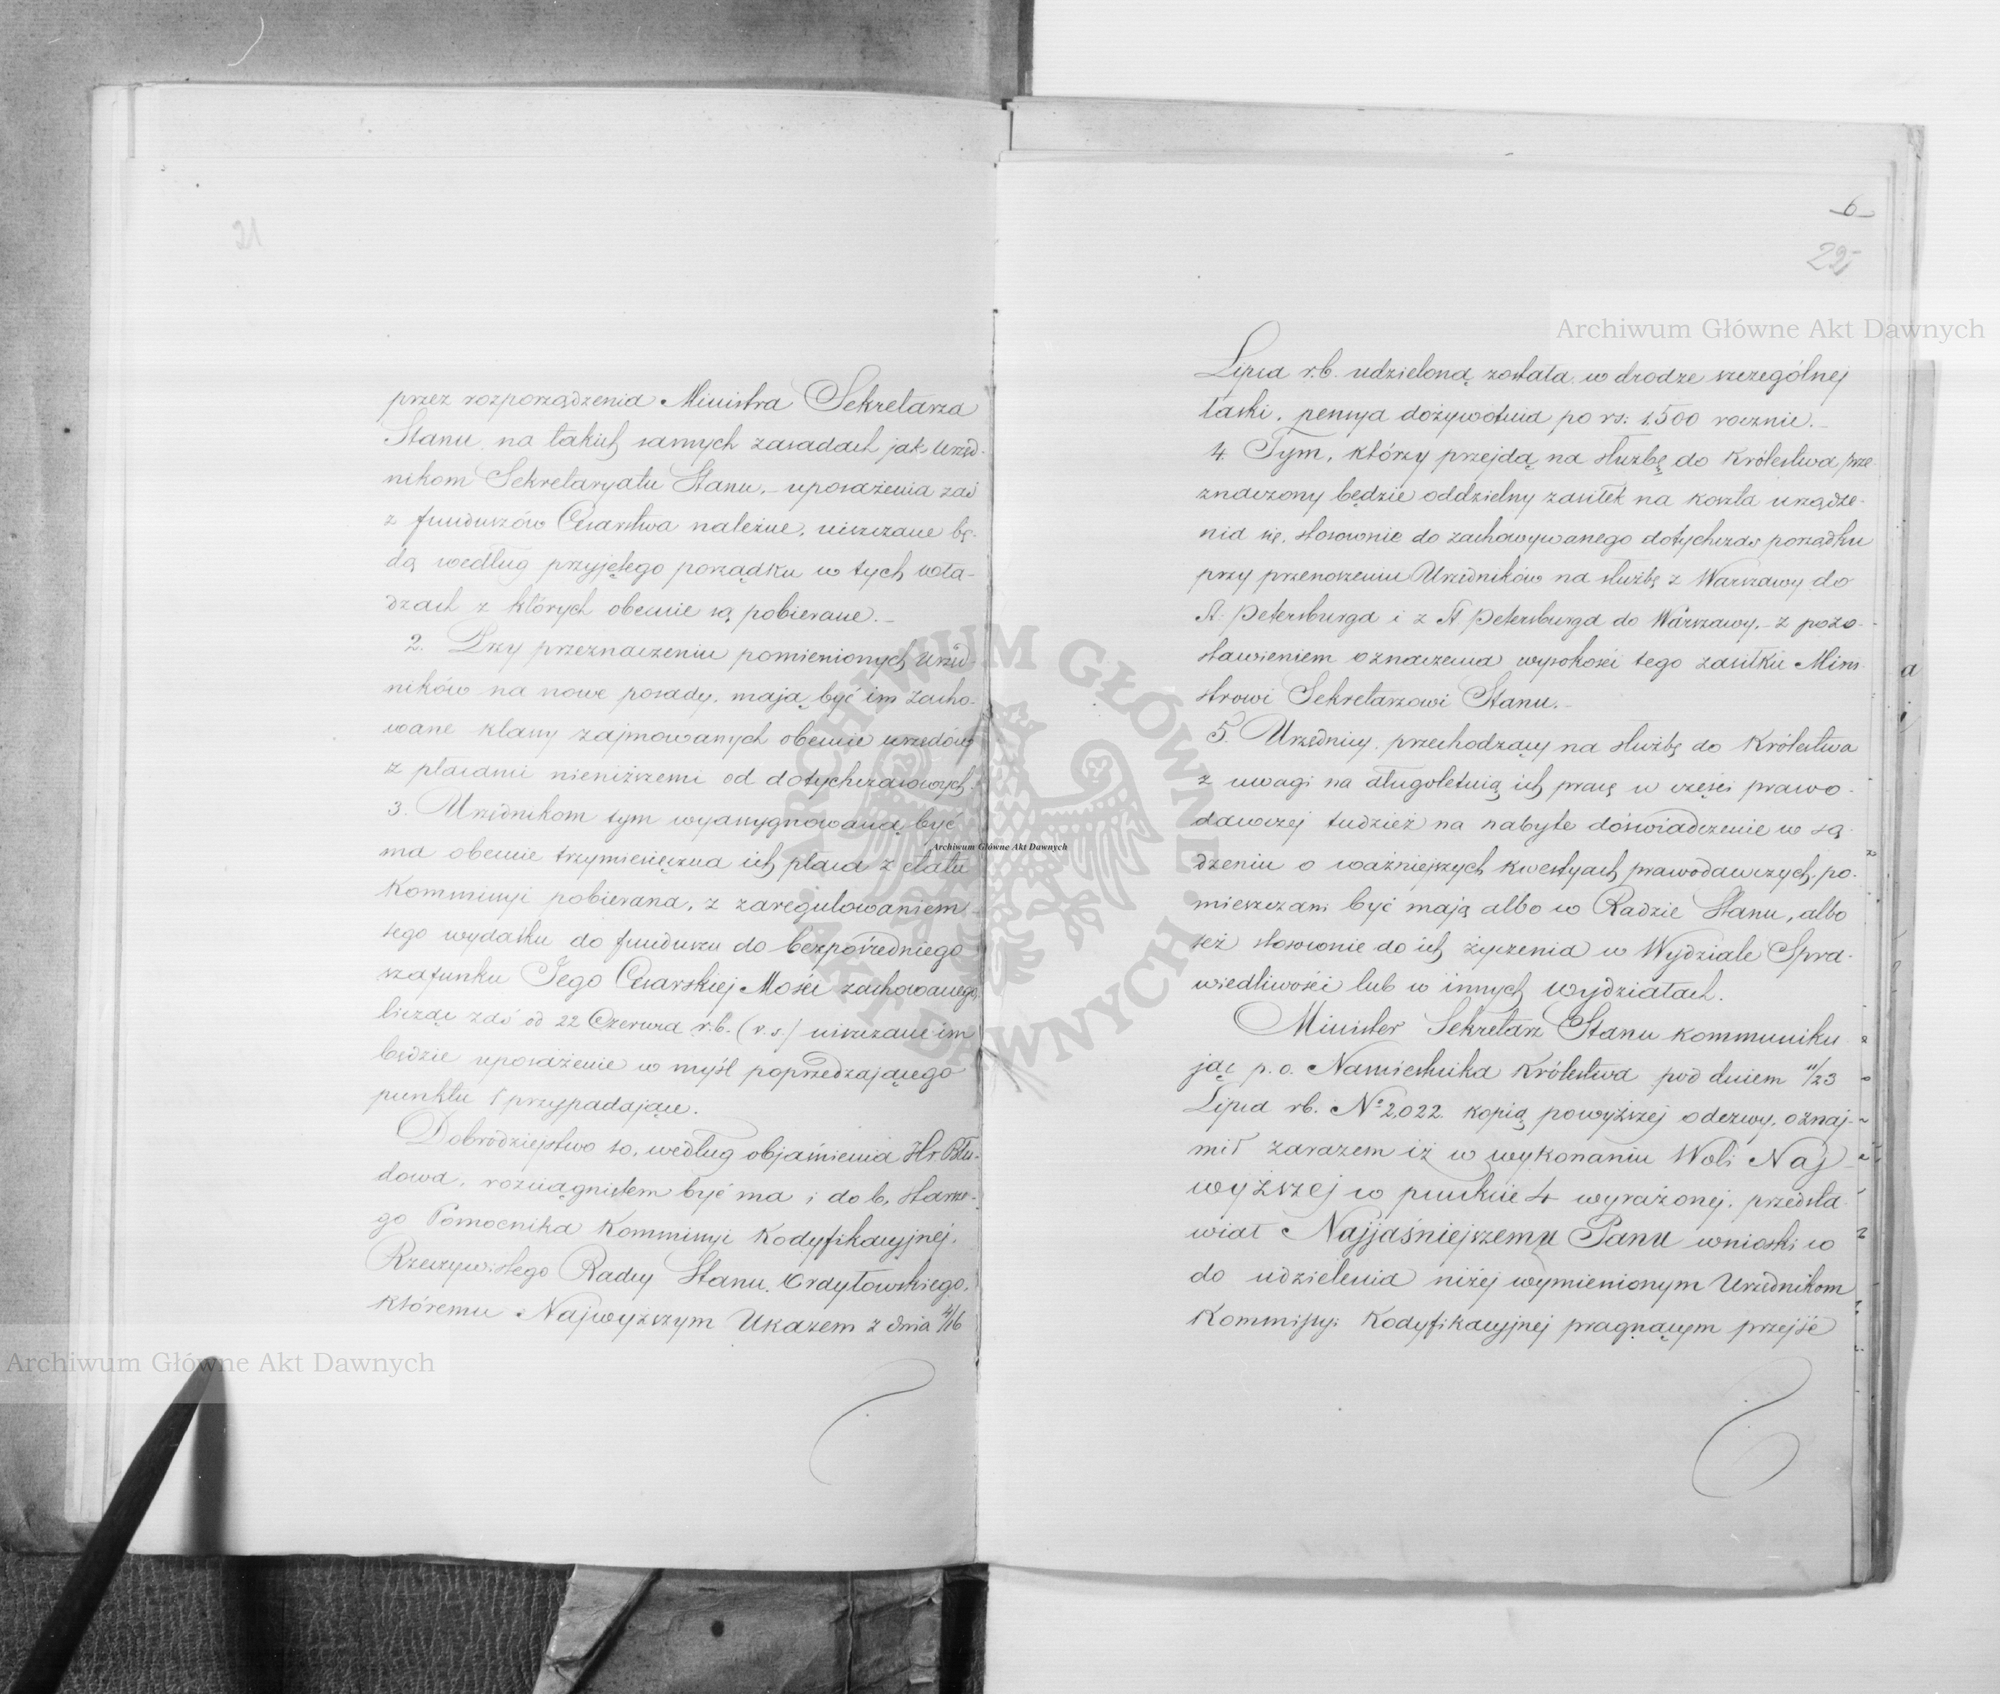 21
przez rozporządzenia Ministra Sekretarza
Stanu, na takich samych zasadach jak Urzęd-
nikom Sekretaryatu Stanu, - uposażenia zaś
z funduszów Cesarstwa należne, uiszczane bę-
dą według przyjętego porządku w tych wła-
dzach z których obecnie są pobierane. -
2. Przy przeznaczeniu pomienionych Urzęd-
ników na nowe posady, mają być im zacho-
wane klassy zajmowanych obecnie urzędów
z płacami nieniższemi od dotychczasowych.
3. Urzędnikom tym wyassygnowaną być
ma obecnie trzymiesięczna ich płaca z etatu
Kommissyi pobierana, z zaregulowaniem
tego wydatku do funduszu do bezpośredniego
szafunku Jego Cesarskiej Mości zachowanego,
licząc zaś od 22 Czerwca r.b. (v. s) uiszczane im
będzie uposażenie w myśl poprzedzającego
punktu 1 przypadające.
Dobrodziejstwo to, według objaśnienia Hr. Błu-
dowa, rozciągniętem być ma i do b, starsze-
go Pomocnika Kommissyi Kodyfikacyjnej,
Rzeczywistego Radcy Stanu, Ordyłowskiego,
któremu Najwyższym Ukazem z dnia 4/16
6
22
Lipca r.b. udzieloną została w drodze szczególnej
łaski, pensya dożywotnia po rs: 1500 rocznie. -
4. Tym, którzy przejdą na służbę do Królestwa prze
znaczony będzie oddzielny zasiłek na koszta urządze-
nia się, stosownie do zachowywanego dotychczas porządku
przy przenoszeniu Urzędników na służbę z Warszawy do
St. Petersburga i z St Petersburga do Warszawy, - z pozo-
stawieniem oznaczenia wysokości tego zasiłku Mini-
strowi Sekretarzowi Stanu. -
5. Urzędnicy, przechodzący na służbę do Królestwa
z uwagi na długoletnią ich pracę w części prawo-
dawczej tudzież na nabyte doświadczenie w są-
dzeniu o ważniejszych kwestyach prawodawczych, po-
mieszczani być mają albo w Radzie Stanu, albo
też stosownie do ich życzenia w Wydziale Spra-
wiedliwości lub w innych wydziałach.
Minister Sekretarz Stanu kommuniku
jąc p. o. Namiestnika Królestwa pod dniem 11/23
Lipca rb. No 2,022 kopią powyższej odezwy, oznaj-
mił zarazem iż w wykonaniu Woli Naj-
wyższej w punkcie 4 wyrażonej, przedsta
wiał Najjaśniejszemu Panu wnioski co
do udzielenia niżej wymienionym Urzędnikom
Kommissyi Kodyfikacyjnej pragnącym przejść
Archiwum Główne Akt Dawnych
Archiwum Główne Akt Dawnych
Archiwum Główne Akt Dawnych
ARCHIWUM GŁÓWNE AKT DAWNYCH